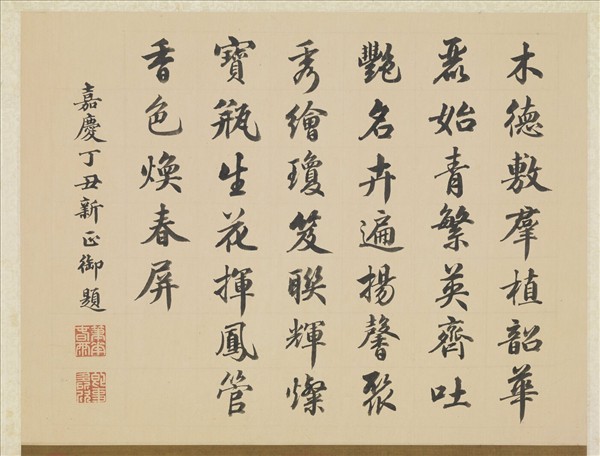 木德敷羣植韶華
始青繁英齊吐
豔名卉遍揚馨聚
秀繪瓊笈聯輝燦
寶瓶生花揮鳳管
香色煥春屏
嘉慶丁丑新正御題